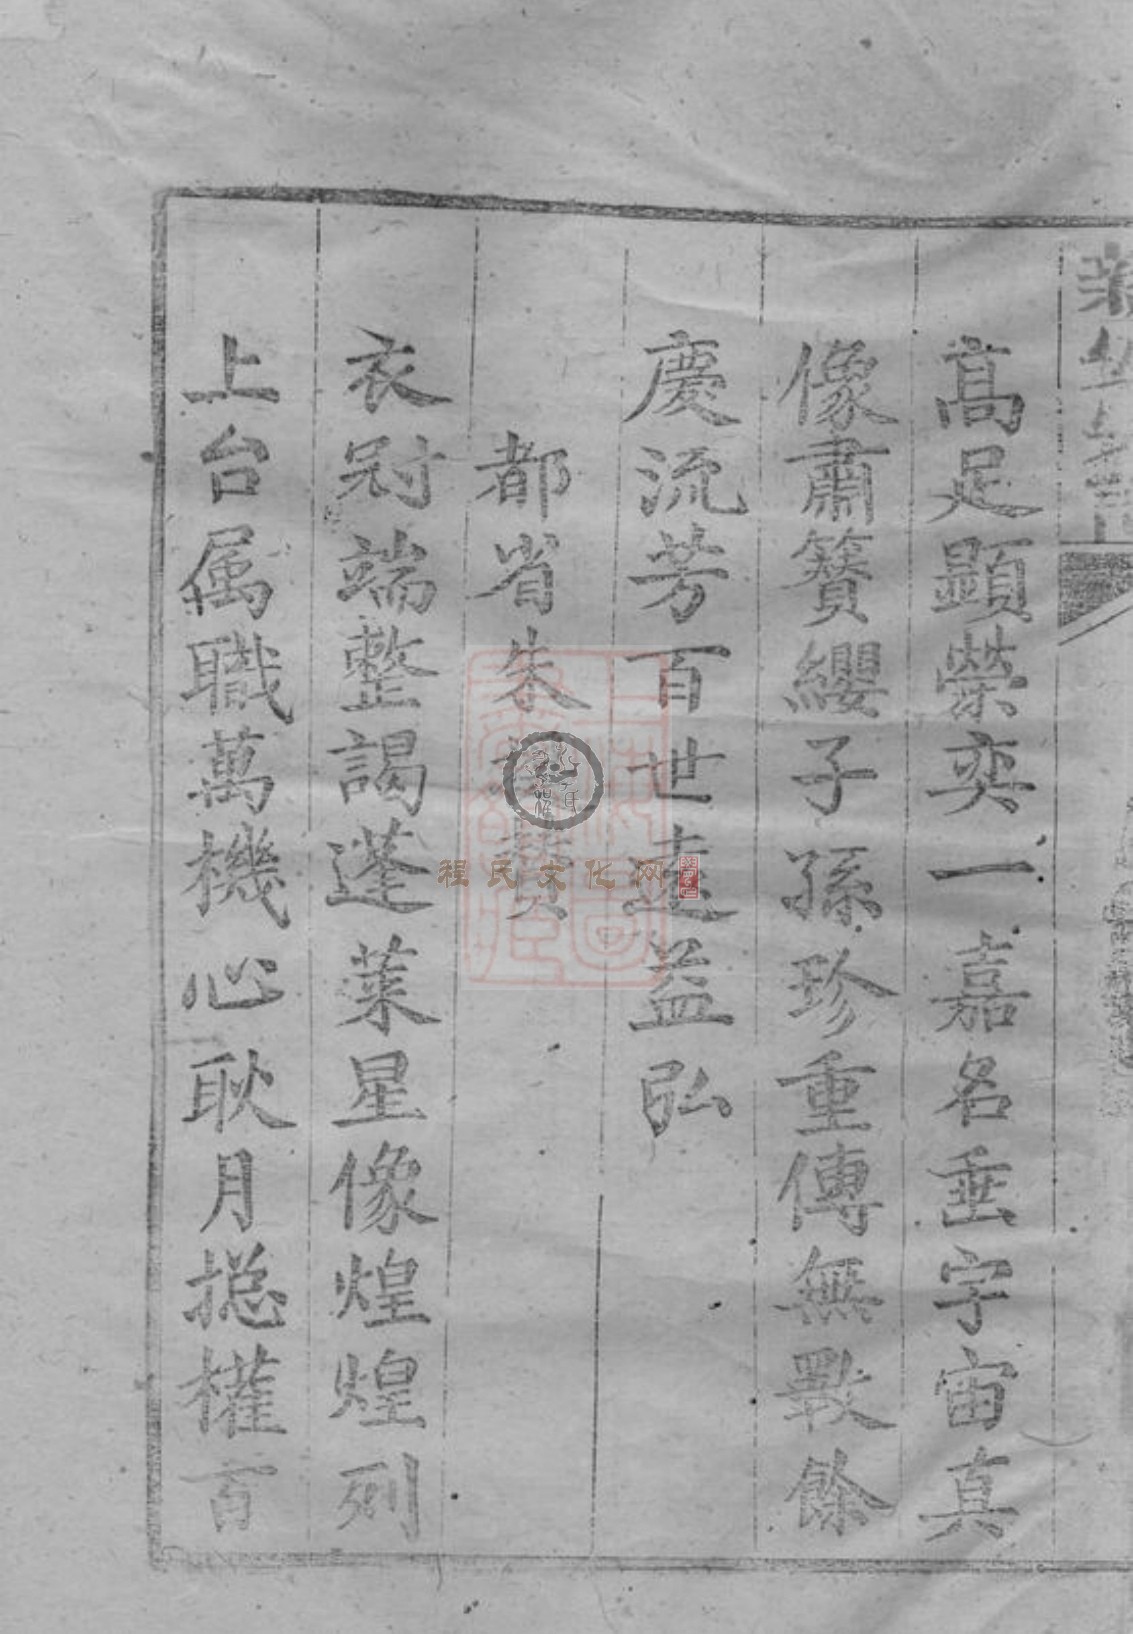 高足顕榮奕一嘉名垂宇宙真
像肅簪纓子孫珍重傳無斁餘
慶流芳百世遠益弘
都省朱贊
衣冠端整謁蓬萊星像煌煌列
上台属職萬機心耿月摠權百
程氏文化网